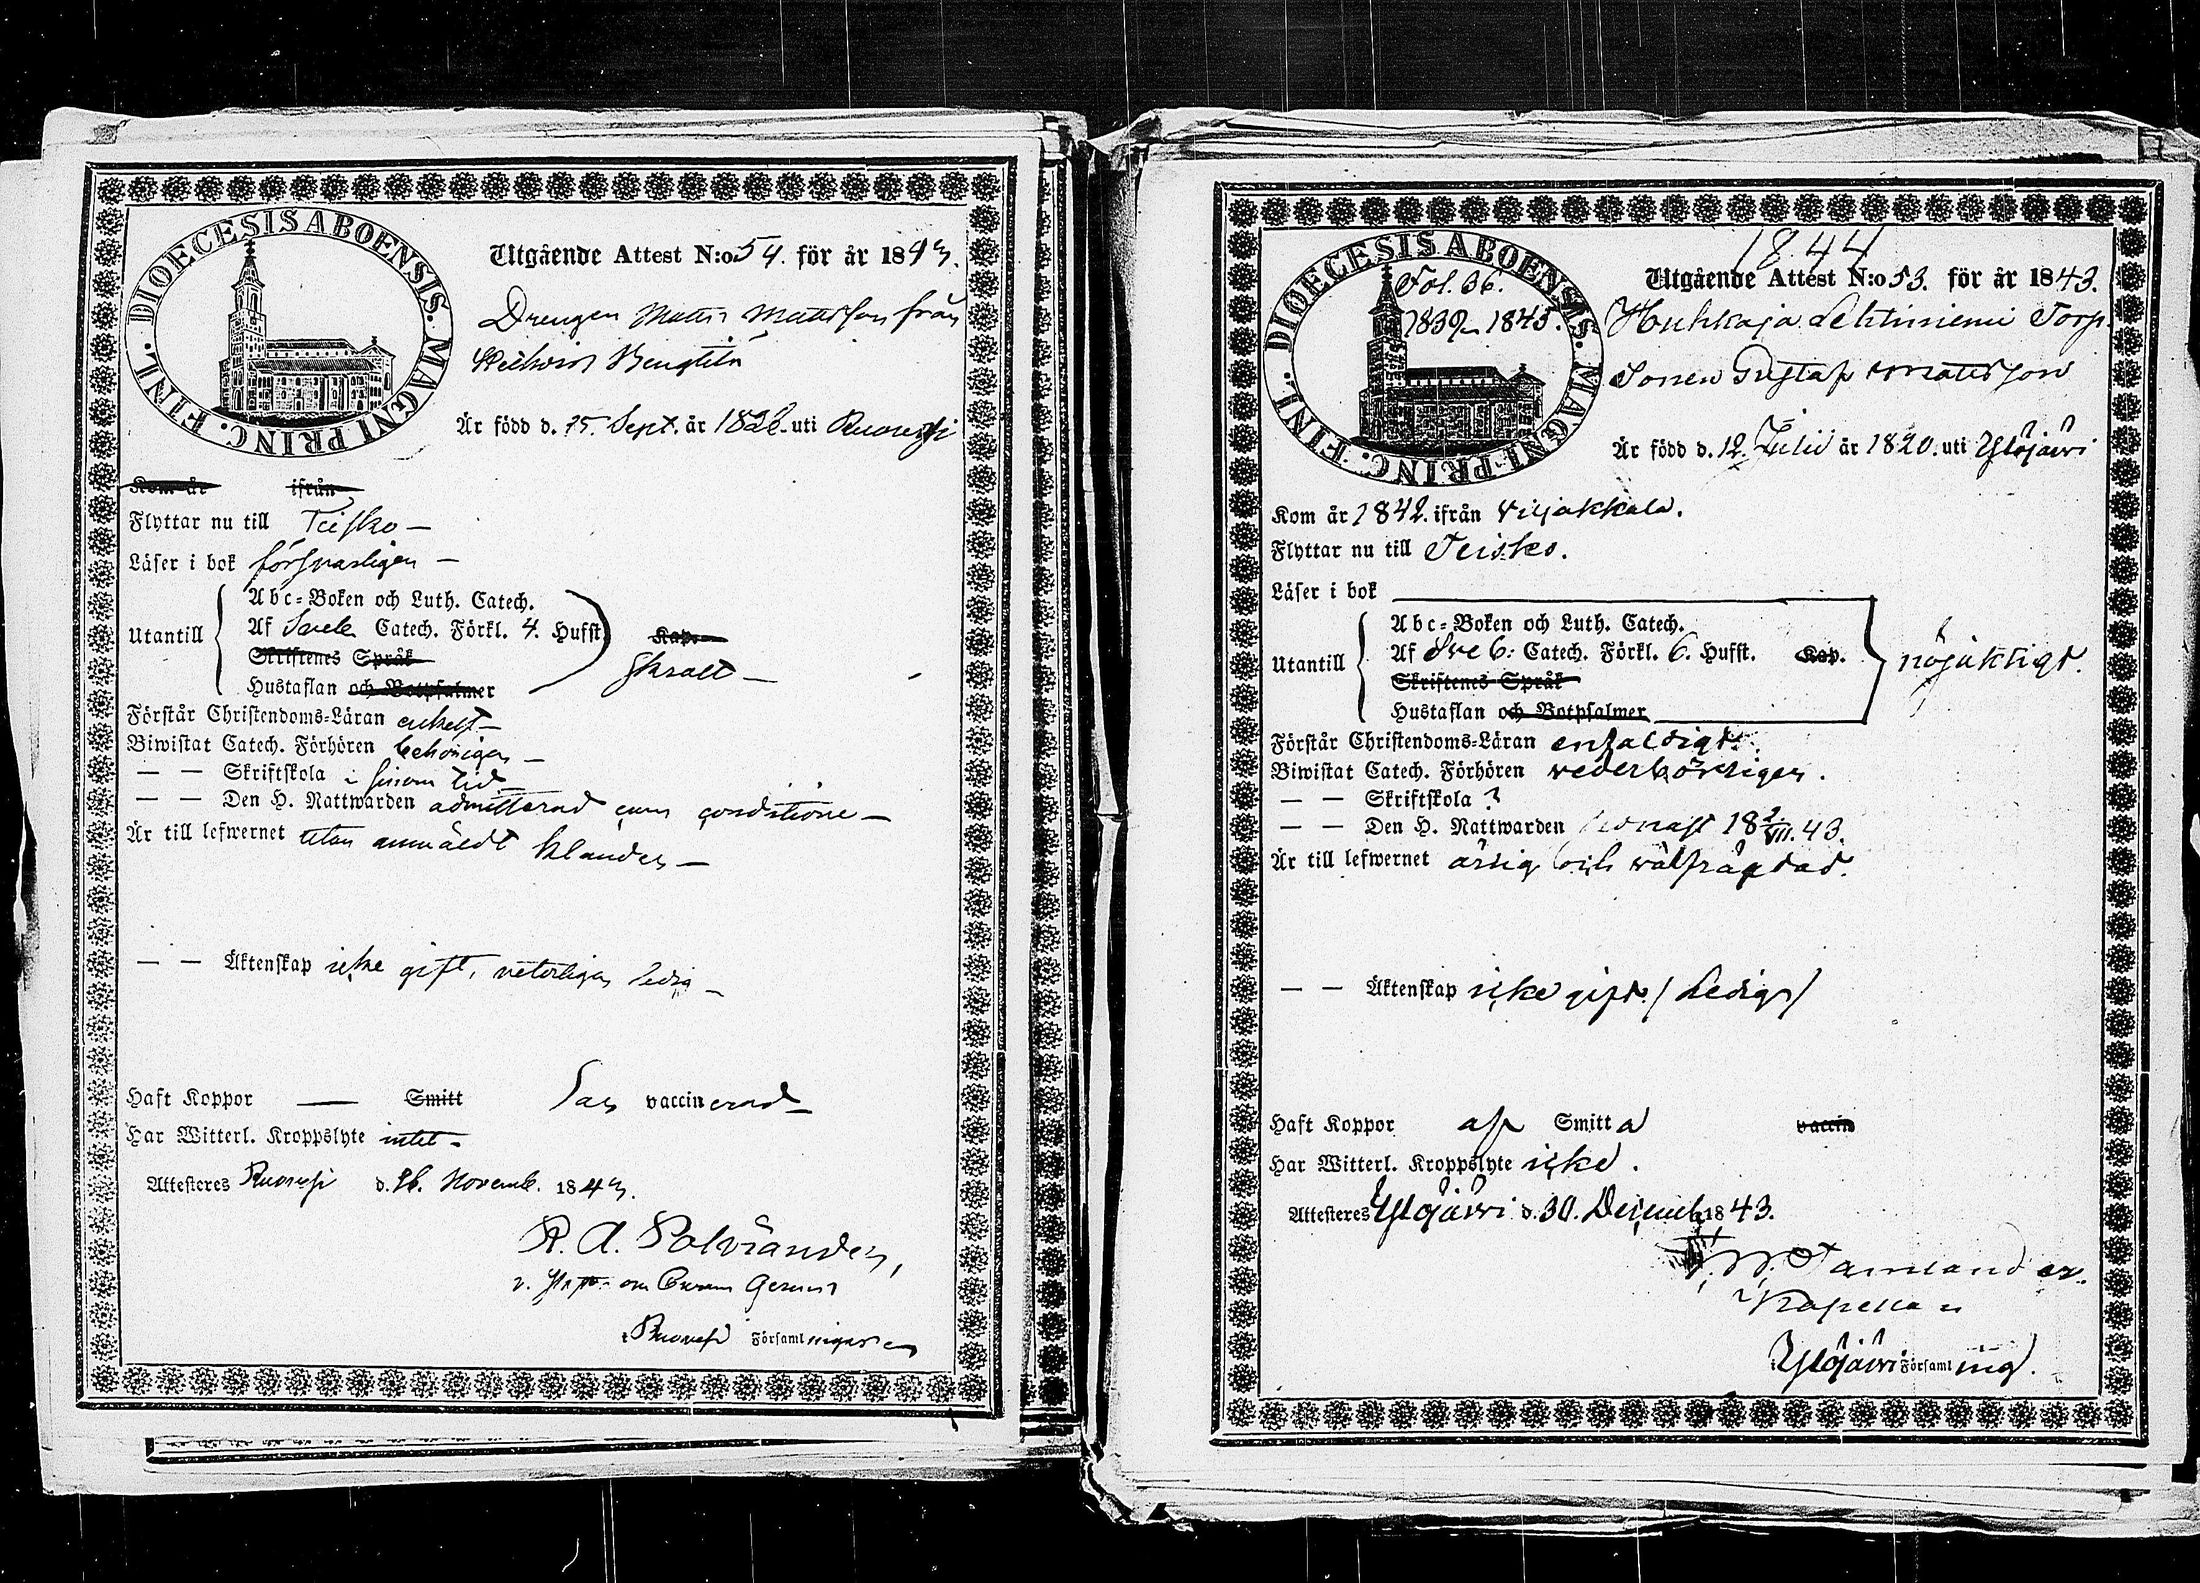 DIOECESIS ABOENSIS. MAGNI PRINC. FINL.
Utgående Attest N:o 54. för år 1843.
Drengen Matts Mattsson från
Bengtilä
Är född d. 15. Sept. är 1822. uti Ruovesi
Kom år ifrån
Flyttar nu till Teisko —
Läser i bok försvarligen —
Utantill
Abc-Boken och Luth. Catech.
Af Sveb. Catech. Förkl. 4. Hufst. Kap.
Skriftenes Språk
Hustaflan och Botpsalmer
skralt —
Förstår Christendoms-Läran enkelt —
Biwistat Catech. Förhören behörigen —
— — Skriftskola i sinom tid —
— — Den H. Nattwarden admitterad cum conditione —
Är till lefwernet utan anmäldt klander —
— — Äktenskap icke gift, veterligen ledig —
Haft Koppor — Smitt vaccinerad —
Har Witterl. Kroppslyte intet —
Attesteres Ruovesi d. 26. Novemb. 1843.
R. A. Polviander,
Ruovesi Församlingar
DIOECESIS ABOENSIS. MAGNI PRINC. FINL.
Fol. 36.
1839–1845.
1844
Utgående Attest N:o 53. för år 1843.
Huhkaja Lehtiniemi Torp.
Sonen Gustaf Mattsson
Är född d. 12. Julii år 1820. uti Ylöjärvi
Kom år 1842. ifrån Viljakkala.
Flyttar nu till Teisko.
Läser i bok
Utantill
Abc-Boken och Luth. Catech.
Af Sveb: Catech. Förkl. 6. Hufst. Kap.
Skriftenes Språk
Hustaflan och Botpsalmer
nöjaktigt.
Förstår Christendoms-Läran enfaldigt.
Biwistat Catech. Förhören vederbörligen.
— — Skriftskola ?
— — Den H. Nattwarden senast 18 2/VII. 43.
Är till lefwernet ärlig och välfrägdad.
— — Äktenskap icke gift. / Ledig /
Haft Koppor af Smitta vaccin
Har Witterl. Kroppslyte icke.
Attesteres Ylöjärvi d. 30. Decemb. 1843.
Tamlander.
Kapellan
i Ylöjärvi Församling.